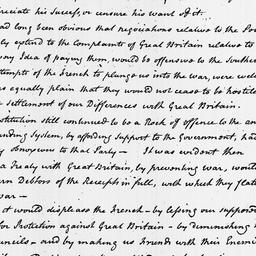 reciate his Success, or censure his want of it.
had long been obvious that negociations relative to the Po
ly extend to the Complaints of Great Britain relative to
any Idea of paying them, would be offensive to the Souther
ttempts of the French to plunge us into the war, were well
as equally plain that they would not cease to be hostile
settlement of our Differences with Great Britain.
stitution still continued to be a Rock of offence to the an
unding System, by affording Support to the Government, had
ly obnoxious to that Party — It was evident then
a Treaty with Great Britain, by preventing war, would
ern Debtors of the Receipts in full, with which they flat
war —
it would displease the French — by lessening our suppos
for Protection against Great Britain — by diminishing
uncils — and by making us Friends with their Enemi